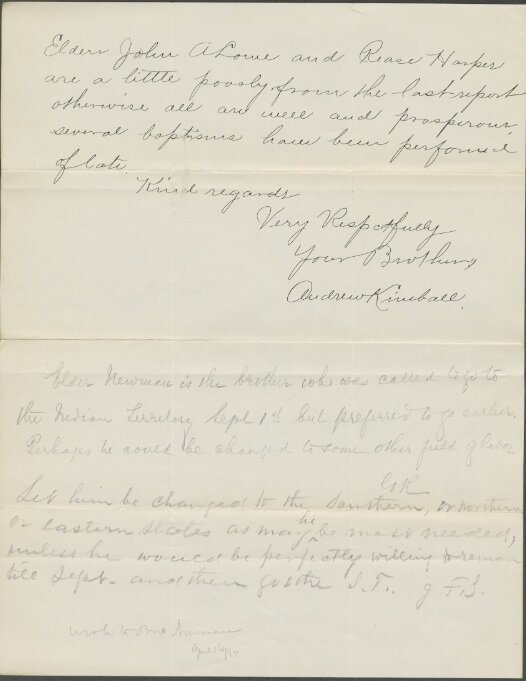 Elders John A Lowe and Rease Harper
are a little poorly from the last report
otherwise all are well and prosperous,
several baptisms have been performed
of late
Kind regards
Very Respctfully
Your Brother,
Andrew Kimball.
Elder Newman is the brother who was called to go to
the Indian Territory Sept 1st but preferred to go earlier.
Perhaps he could be changed to some other field of labor
GR
Let him be changed to the Southern, or northern
or eastern States as may he be most needed,
unless he would be perfectly willing to remain
till Sept. and then go to the I.T. J.F.S.
wrote to Bro Newman
April